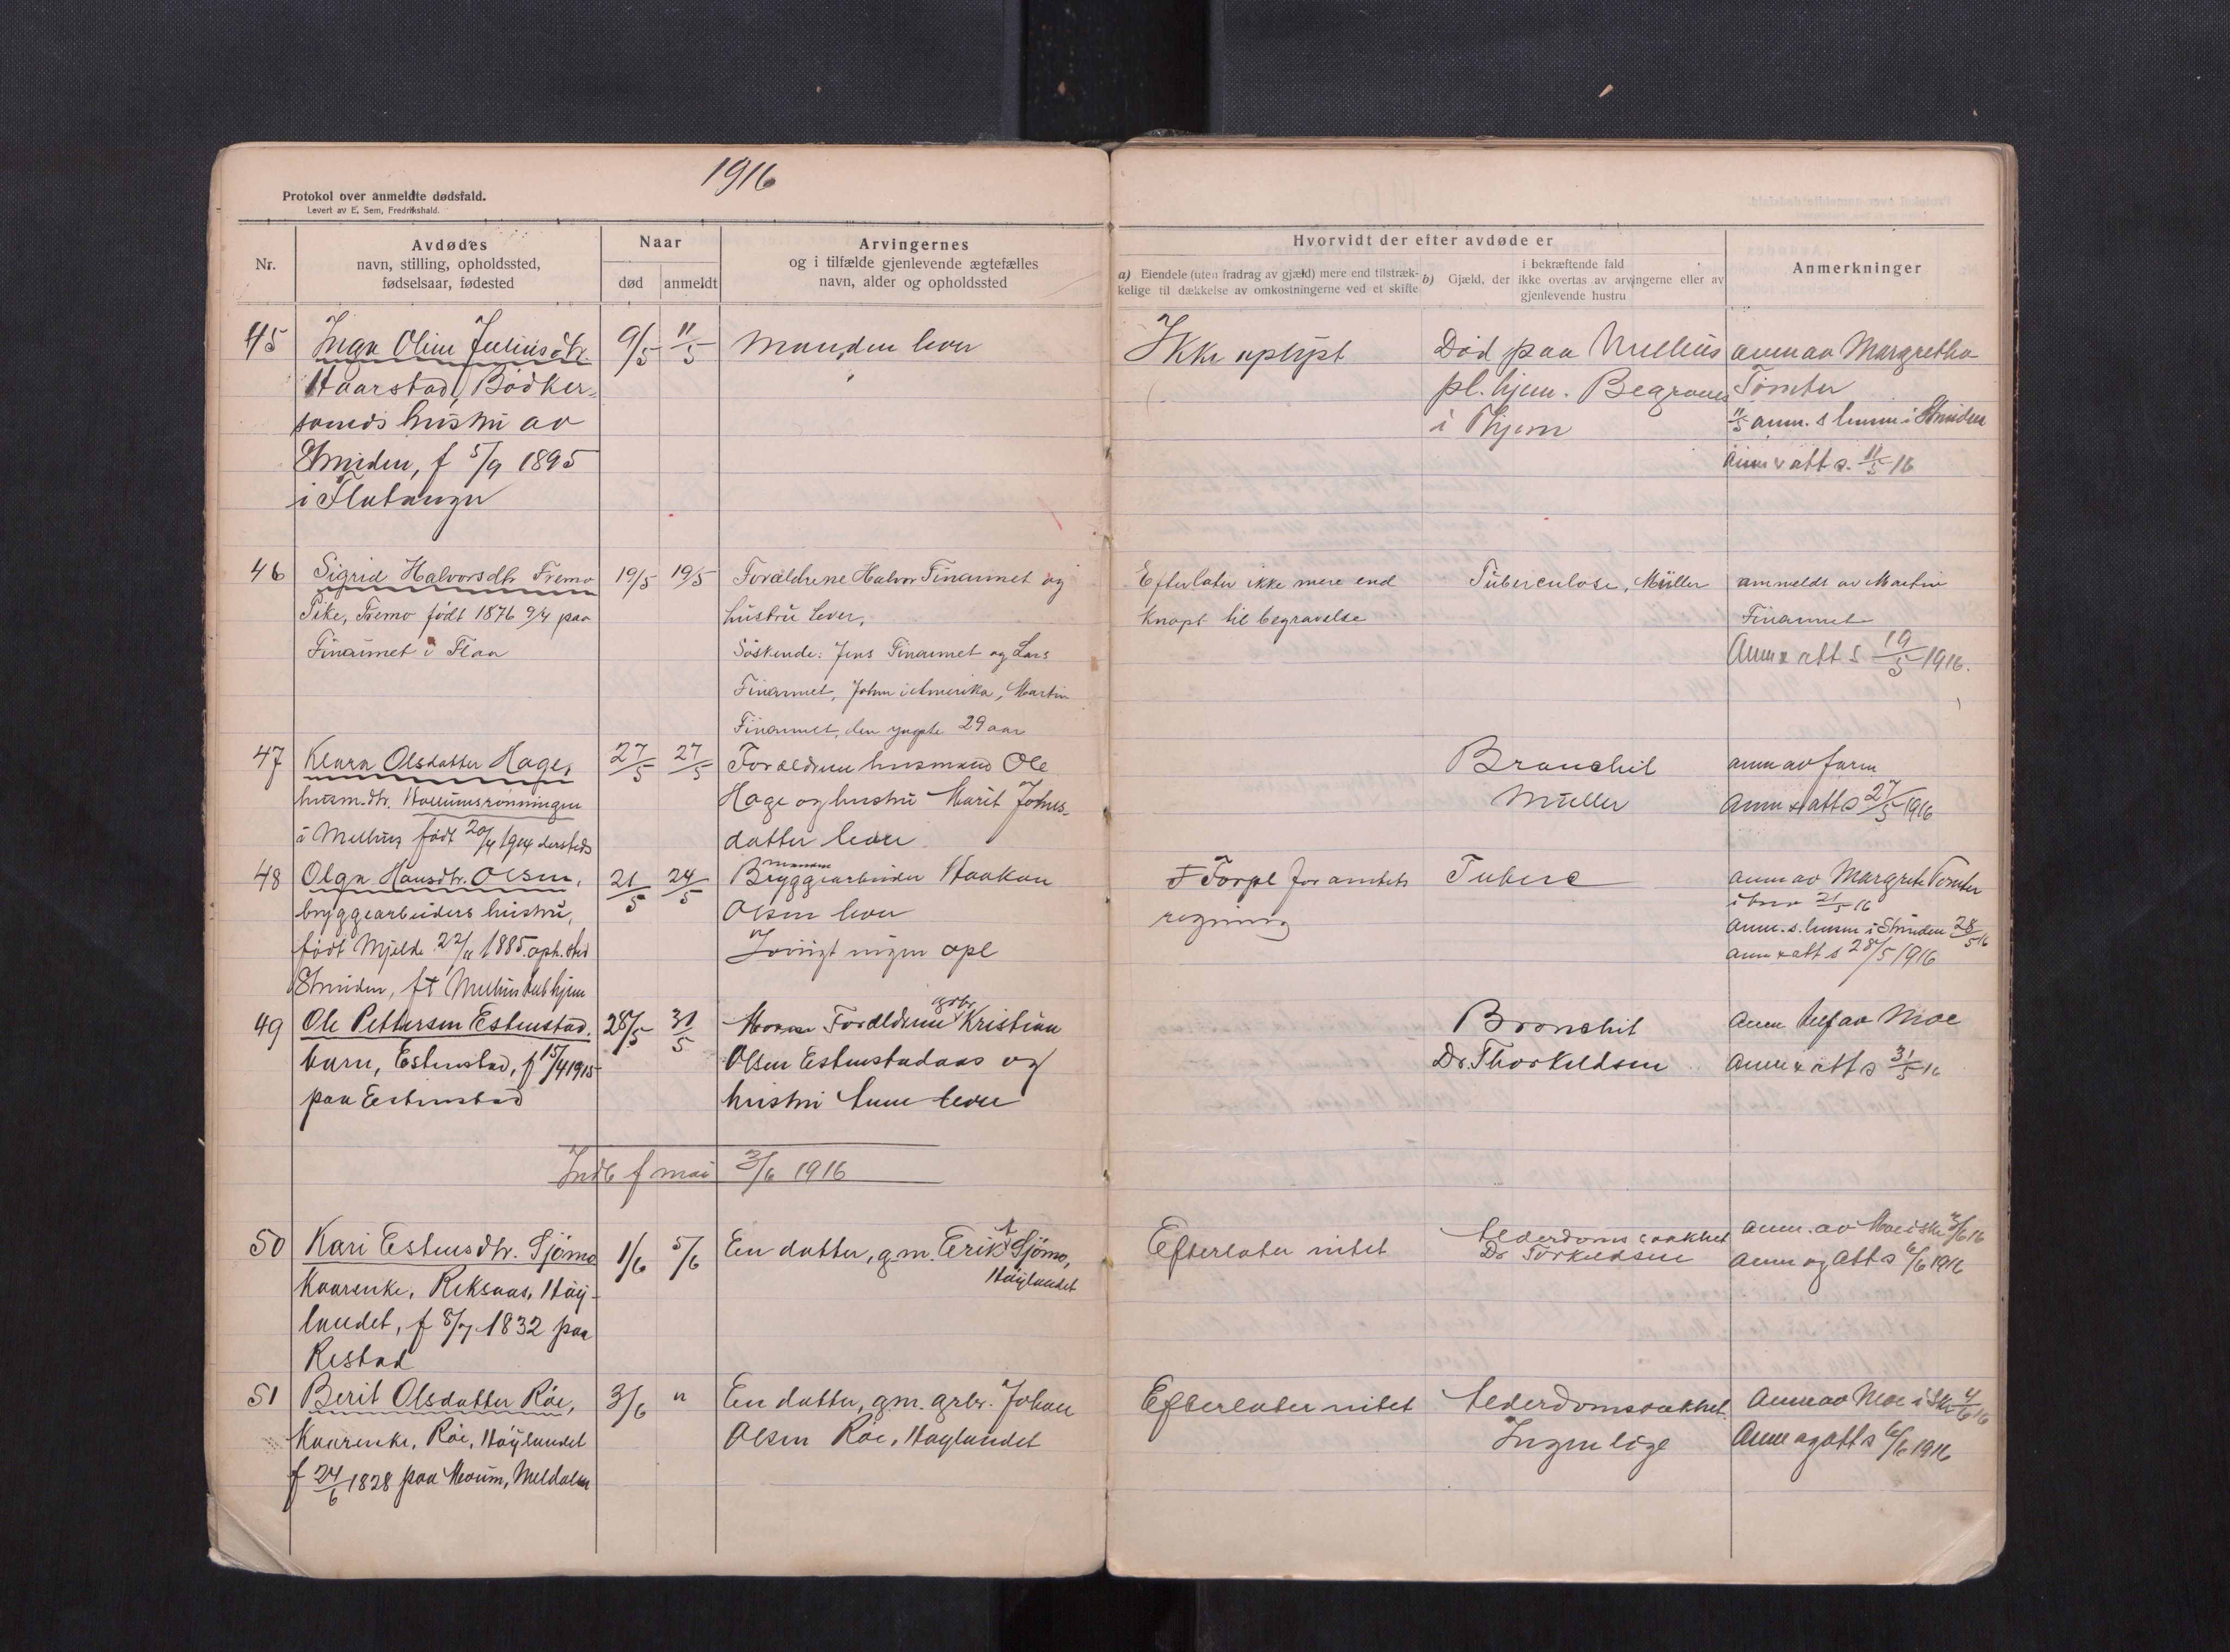 1916
Protokol over anmeldte dødsfald.
Levert av E. Sem, Fredrikshald.
Nr.
Avdødes
navn, stilling, opholdssted,
fødselsaar, fødested
Naar
død
anmeldt
Arvingernes
og i tilfælde gjenlevende ægtefælles
navn, alder og opholdssted
Hvorvidt der efter avdøde er
a) Eiendele (uten fradrag av gjæld) mere end tilstræk-
kelige til dækkelse av omkostningerne ved et skifte
i bekræftende fald
b) Gjæld, der ikke overtas av arvingerne eller av
gjenlevende hustru
Anmerkninger
45
Inga Oline Juliusdtr.
Haarstad, Bödker-
svends hustru av
Strinden, f 5/9 1895
i Flatanger
9/5
11/5
Manden lever
Ikke oplyst
Död paa Melhus
pl. hjem. Begraves
i Thjem
anm av Margrethe
Tömter
11/5 anm. s lensm i Strinden
Anm & att s. 11/5 16
46
Sigrid Halvorsdtr Fremo
Pike, Fremo födt 1876 9/4 paa
Finamnet i Flaa
19/5
19/5
Forældrene Halvor Finamnet og
hustru lever,
Söskende: Jens Finamnet og Lars
Finamnet, John i Amerika, Martin
Finamnet, den yngste 29 aar
Efterlater ikke mere end
knapt til begravelse
Tuberculose, Müller
anmeldt av Martin
Finamnet
Anm & att s 19/5 1916.
47
Klara Olsdatter Hage,
husm.dtr.
i Melhus födt 20/4 1904 dersteds
27/5
27/5
Forældrene husmand Ole
Hage og hustru Marit Johns-
datter lever
Bronchit
Müller
anm av farm
Anm & att s 27/5 1916
48
Olga Hansdtr. Olsen,
bryggearbeiders hustru,
födt Mjelde 22/11 1885. oph. sted
Strinden, ft Melhus tub hjem
21/5
24/5
manden
Bryggearbeider Haakon
Olsen lever
Jövrigt ingen opl
Forpl for amtets
regning
Tuberc
anm av Margrete Tomter
21/5 16
Anm. s. lensm i Strinden 28/5 16
anm & att s 28/5 1916
49
Ole Pettersen Estenstad.
barn, Estenstad, f 15/4 1915
paa Estenstad
28/5
31/5
Forældrene grbr Kristian
Olsen Estenstadaas og
hustru Anne lever
Bronchit
Dr. Thorkildsen
Anm telf av Moe
Anm & att s 31/5 16
Indb f mai 3/6 1916
50
Kari Estensdtr. Sjömo
Kaarenke, Reksaas, Höy-
landet, f 8/7 1832 paa
Restad
1/6
5/6
En datter, g.m. Erik A Sjömo,
Höylandet
Efterlater intet
Alderdomssvakhet
Dr Torkildsen
Anm. av Moe i 3/6 16
Anm og Att s 6/6 1916
51
Berit Olsdatter Röe,
Kaarenke, Röe, Höylandet
f 24/6 1828 paa Moum, Meldalen
3/6
"
En datter, gm. grbr. Johan
Olsen Röe, Höylandet
Efterlater intet
Alderdomssvakhet
Ingen læge
Anm av Moe i Sk 4/6 16
Anm og att s 6/6 1916